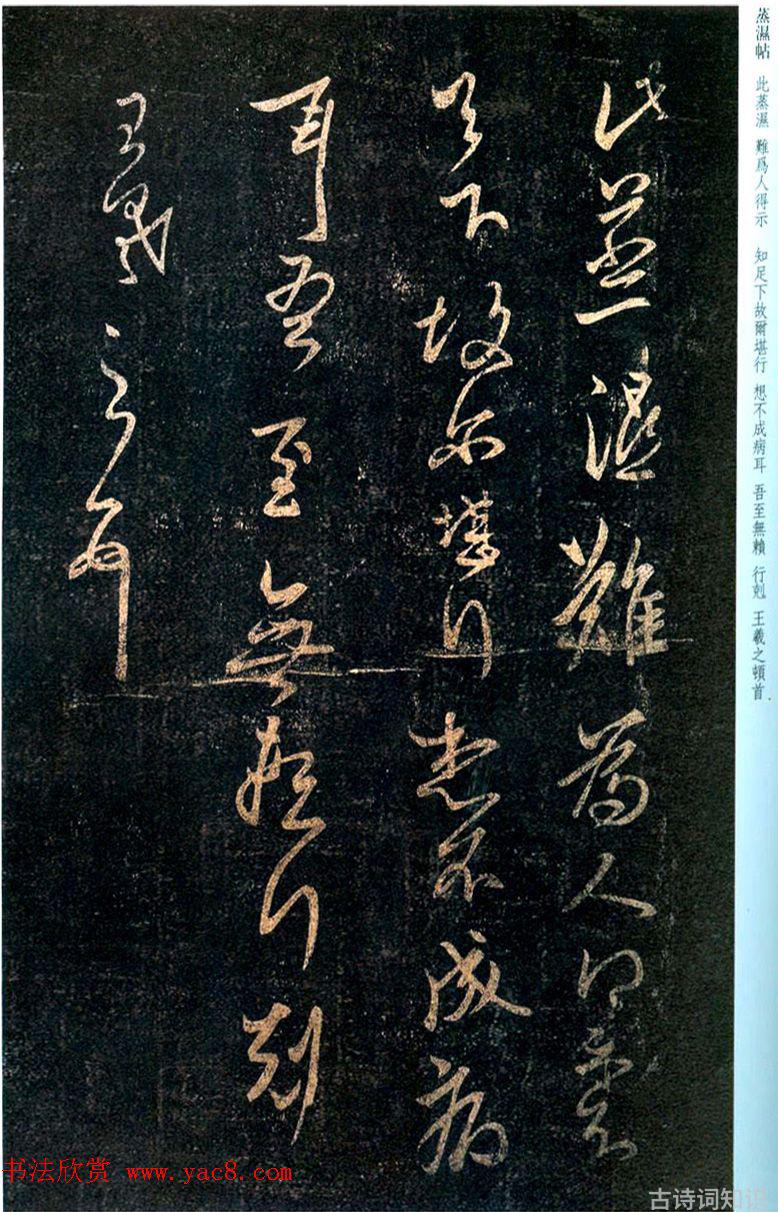 蒸濕帖 此蒸濕 難爲人得示 知足下故爾堪行 想不成病耳 吾至無賴 行剋 王羲之頓首
此蒸濕難為人得示知
足下故尔堪行想不成病
耳吾至無賴行剋
王羲之頓首
书法欣赏 www.yac8.com
古诗词知识